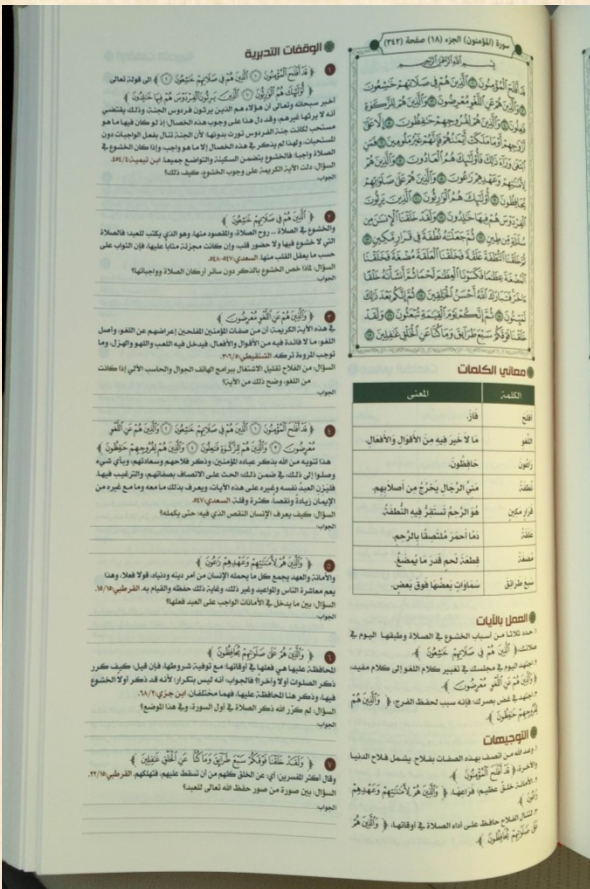 سورة (المؤمنون) الجزء (١٨) صفحة (٣٤٢)
بِسْمِ اللَّهِ الرَّحْمَٰنِ الرَّحِيمِ
قَدْ أَفْلَحَ الْمُؤْمِنُونَ ۝١ الَّذِينَ هُمْ فِي صَلَاتِهِمْ خَاشِعُونَ
۝٢ وَالَّذِينَ هُمْ عَنِ اللَّغْوِ مُعْرِضُونَ ۝٣ وَالَّذِينَ هُمْ لِلزَّكَاةِ
فَاعِلُونَ ۝٤ وَالَّذِينَ هُمْ لِفُرُوجِهِمْ حَافِظُونَ ۝٥ إِلَّا عَلَىٰ
أَزْوَاجِهِمْ أَوْ مَا مَلَكَتْ أَيْمَانُهُمْ فَإِنَّهُمْ غَيْرُ مَلُومِينَ ۝٦ فَمَنِ
ابْتَغَىٰ وَرَاءَ ذَٰلِكَ فَأُولَٰئِكَ هُمُ الْعَادُونَ ۝٧ وَالَّذِينَ هُمْ
لِأَمَانَاتِهِمْ وَعَهْدِهِمْ رَاعُونَ ۝٨ وَالَّذِينَ هُمْ عَلَىٰ صَلَوَاتِهِمْ
يُحَافِظُونَ ۝٩ أُولَٰئِكَ هُمُ الْوَارِثُونَ ۝١٠ الَّذِينَ يَرِثُونَ
الْفِرْدَوْسَ هُمْ فِيهَا خَالِدُونَ ۝١١ وَلَقَدْ خَلَقْنَا الْإِنسَانَ مِن
سُلَالَةٍ مِّن طِينٍ ۝١٢ ثُمَّ جَعَلْنَاهُ نُطْفَةً فِي قَرَارٍ مَّكِينٍ ۝١٣
ثُمَّ خَلَقْنَا النُّطْفَةَ عَلَقَةً فَخَلَقْنَا الْعَلَقَةَ مُضْغَةً فَخَلَقْنَا
الْمُضْغَةَ عِظَامًا فَكَسَوْنَا الْعِظَامَ لَحْمًا ثُمَّ أَنشَأْنَاهُ خَلْقًا
آخَرَ فَتَبَارَكَ اللَّهُ أَحْسَنُ الْخَالِقِينَ ۝١٤ ثُمَّ إِنَّكُم بَعْدَ ذَٰلِكَ
لَمَيِّتُونَ ۝١٥ ثُمَّ إِنَّكُمْ يَوْمَ الْقِيَامَةِ تُبْعَثُونَ ۝١٦ وَلَقَدْ
خَلَقْنَا فَوْقَكُمْ سَبْعَ طَرَائِقَ وَمَا كُنَّا عَنِ الْخَلْقِ غَافِلِينَ ۝١٧
معاني الكلمات
الكلمة المعنى
أفلح فَازَ.
اللَّغو مَا لَا خَيرَ فِيهِ مِنَ الأَقوَالِ وَالأَفعَالِ.
رَاعُونَ حَافِظُونَ.
نُطفَة مَنيُّ الرِّجَالِ يَخرُجُ مِن أَصلَابِهِم.
قَرَارٍ مَكِينٍ هُوَ الرَّحِمُ تَستَقِرُّ فِيهِ النُّطفَةُ.
عَلَقَةً دَمًا أَحمَرَ مُلتَصِقًا بِالرَّحِمِ.
مُضغَةً قِطعَةَ لَحمٍ قَدرَ مَا يُمضَغُ.
سَبعَ طَرَائِقَ سَمَاوَاتٍ بَعضُهَا فَوقَ بَعضٍ.
العمل بالآيات
١. حدد ثلاثا من أسباب الخشوع في الصلاة وطبقها اليوم في
صلاتك، ﴿ الَّذِينَ هُمْ فِي صَلَاتِهِمْ خَاشِعُونَ ﴾.
٢. اجتهد اليوم في مجلسك في تغيير كلام اللغو إلى كلام مفيد،
﴿ وَالَّذِينَ هُمْ عَنِ اللَّغْوِ مُعْرِضُونَ ﴾.
٣. اجتهد في غض بصرك؛ فإنه سبب لحفظ الفرج، ﴿ وَالَّذِينَ هُمْ
لِفُرُوجِهِمْ حَافِظُونَ ﴾.
التوجيهات
١. وعد الله من اتصف بهذه الصفات بفلاح يشمل فلاح الدنيا
والآخرة، ﴿ قَدْ أَفْلَحَ الْمُؤْمِنُونَ ﴾.
٢. الأمانة خلق عظيم؛ فراعها، ﴿ وَالَّذِينَ هُمْ لِأَمَانَاتِهِمْ وَعَهْدِهِمْ
رَاعُونَ ﴾.
٣. لتنال الفلاح حافظ على أداء الصلاة في أوقاتها، ﴿ وَالَّذِينَ هُمْ
عَلَىٰ صَلَوَاتِهِمْ يُحَافِظُونَ ﴾.
الوقفات التدبرية
١ ﴿ قَدْ أَفْلَحَ الْمُؤْمِنُونَ ۝١ الَّذِينَ هُمْ فِي صَلَاتِهِمْ خَاشِعُونَ ﴾ إلى قوله تعالى
﴿ أُولَٰئِكَ هُمُ الْوَارِثُونَ ۝١٠ الَّذِينَ يَرِثُونَ الْفِرْدَوْسَ هُمْ فِيهَا خَالِدُونَ ﴾
أخبر سبحانه وتعالى أن هؤلاء هم الذين يرثون فردوس الجنة، وذلك يقتضي
أنه لا يرثها غيرهم، وقد دل هذا على وجوب هذه الخصال؛ إذ لو كان فيها ما هو
مستحب لكانت جنة الفردوس تورث بدونها؛ لأن الجنة تنال بفعل الواجبات دون
المستحبات، ولهذا لم يذكر في هذه الخصال إلا ما هو واجب، وإذا كان الخشوع في
الصلاة واجبا؛ فالخشوع يتضمن السكينة والتواضع جميعا. ابن تيمية:
السؤال: دلت الآية الكريمة على وجوب الخشوع، كيف ذلك؟
الجواب:
٢ ﴿ الَّذِينَ هُمْ فِي صَلَاتِهِمْ خَاشِعُونَ ﴾
والخشوع في الصلاة .. روح الصلاة، والمقصود منها، وهو الذي يكتب للعبد؛ فالصلاة
التي لا خشوع فيها ولا حضور قلب، وإن كانت مجزئة، مثابا عليها، فإن الثواب على
حسب ما يعقل القلب منها. السعدي:٥٤٧-٥٤٨.
السؤال: لماذا خص الخشوع بالذكر دون سائر أركان الصلاة وواجباتها؟
الجواب:
٣ ﴿ وَالَّذِينَ هُمْ عَنِ اللَّغْوِ مُعْرِضُونَ ﴾
في هذه الآية الكريمة: أن من صفات المؤمنين المفلحين إعراضهم عن اللغو، وأصل
اللغو: ما لا فائدة فيه من الأقوال والأفعال، فيدخل فيه اللعب واللهو والهزل، وما
توجب المروءة تركه. الشنقيطي:٣٠٦/٥.
السؤال: من الفلاح تقليل الاشتغال ببرامج الهاتف الجوال والحاسب الآلي إذا كانت
من اللغو، وضح ذلك من الآية؟
الجواب:
٤ ﴿ قَدْ أَفْلَحَ الْمُؤْمِنُونَ ۝١ الَّذِينَ هُمْ فِي صَلَاتِهِمْ خَاشِعُونَ ۝٢ وَالَّذِينَ هُمْ عَنِ اللَّغْوِ
مُعْرِضُونَ ۝٣ وَالَّذِينَ هُمْ لِلزَّكَاةِ فَاعِلُونَ ۝٤ وَالَّذِينَ هُمْ لِفُرُوجِهِمْ حَافِظُونَ ﴾
هذا تنويه من الله بذكر عباده المؤمنين، وذكر فلاحهم وسعادتهم، وبأي شيء
وصلوا إلى ذلك، في ضمن ذلك: الحث على الاتصاف بصفاتهم، والترغيب فيها،
فليزن العبد نفسه وغيره على هذه الآيات، ويعرف بذلك ما معه وما مع غيره من
الإيمان زيادة ونقصا، كثرة وقلة. السعدي:٥٤٧.
السؤال: كيف يعرف الإنسان النقص الذي فيه؛ حتى يكمله؟
الجواب:
٥ ﴿ وَالَّذِينَ هُمْ لِأَمَانَاتِهِمْ وَعَهْدِهِمْ رَاعُونَ ﴾
والأمانة والعهد يجمع كل ما يحمله الإنسان من أمر دينه ودنياه: قولا فعلا، وهذا
يعم معاشرة الناس والمواعيد وغير ذلك، وغاية ذلك حفظه والقيام به. القرطبي:١٥/١٥.
السؤال: بين ما يدخل في الأمانات الواجب على العبد فعلها؟
الجواب:
٦ ﴿ وَالَّذِينَ هُمْ عَلَىٰ صَلَوَاتِهِمْ يُحَافِظُونَ ﴾
المحافظة عليها هي فعلها في أوقاتها مع توفية شروطها، فإن قيل: كيف كرر
ذكر الصلوات أولا وآخرا؟ فالجواب: أنه ليس بتكرار؛ لأنه قد ذكر أولا الخشوع
فيها، وذكر هنا المحافظة عليها، فهما مختلفان. ابن جزي:٦٨/٢.
السؤال: لم كرر الله ذكر الصلاة في أول السورة، وفي هذا الموضع؟
الجواب:
٧ ﴿ وَلَقَدْ خَلَقْنَا فَوْقَكُمْ سَبْعَ طَرَائِقَ وَمَا كُنَّا عَنِ الْخَلْقِ غَافِلِينَ ﴾
وقال أكثر المفسرين: أي: عن الخلق كلهم من أن تسقط عليهم، فتهلكهم. القرطبي:٢٢/١٥.
السؤال: بين صورة من صور حفظ الله تعالى للعبد؟
الجواب: